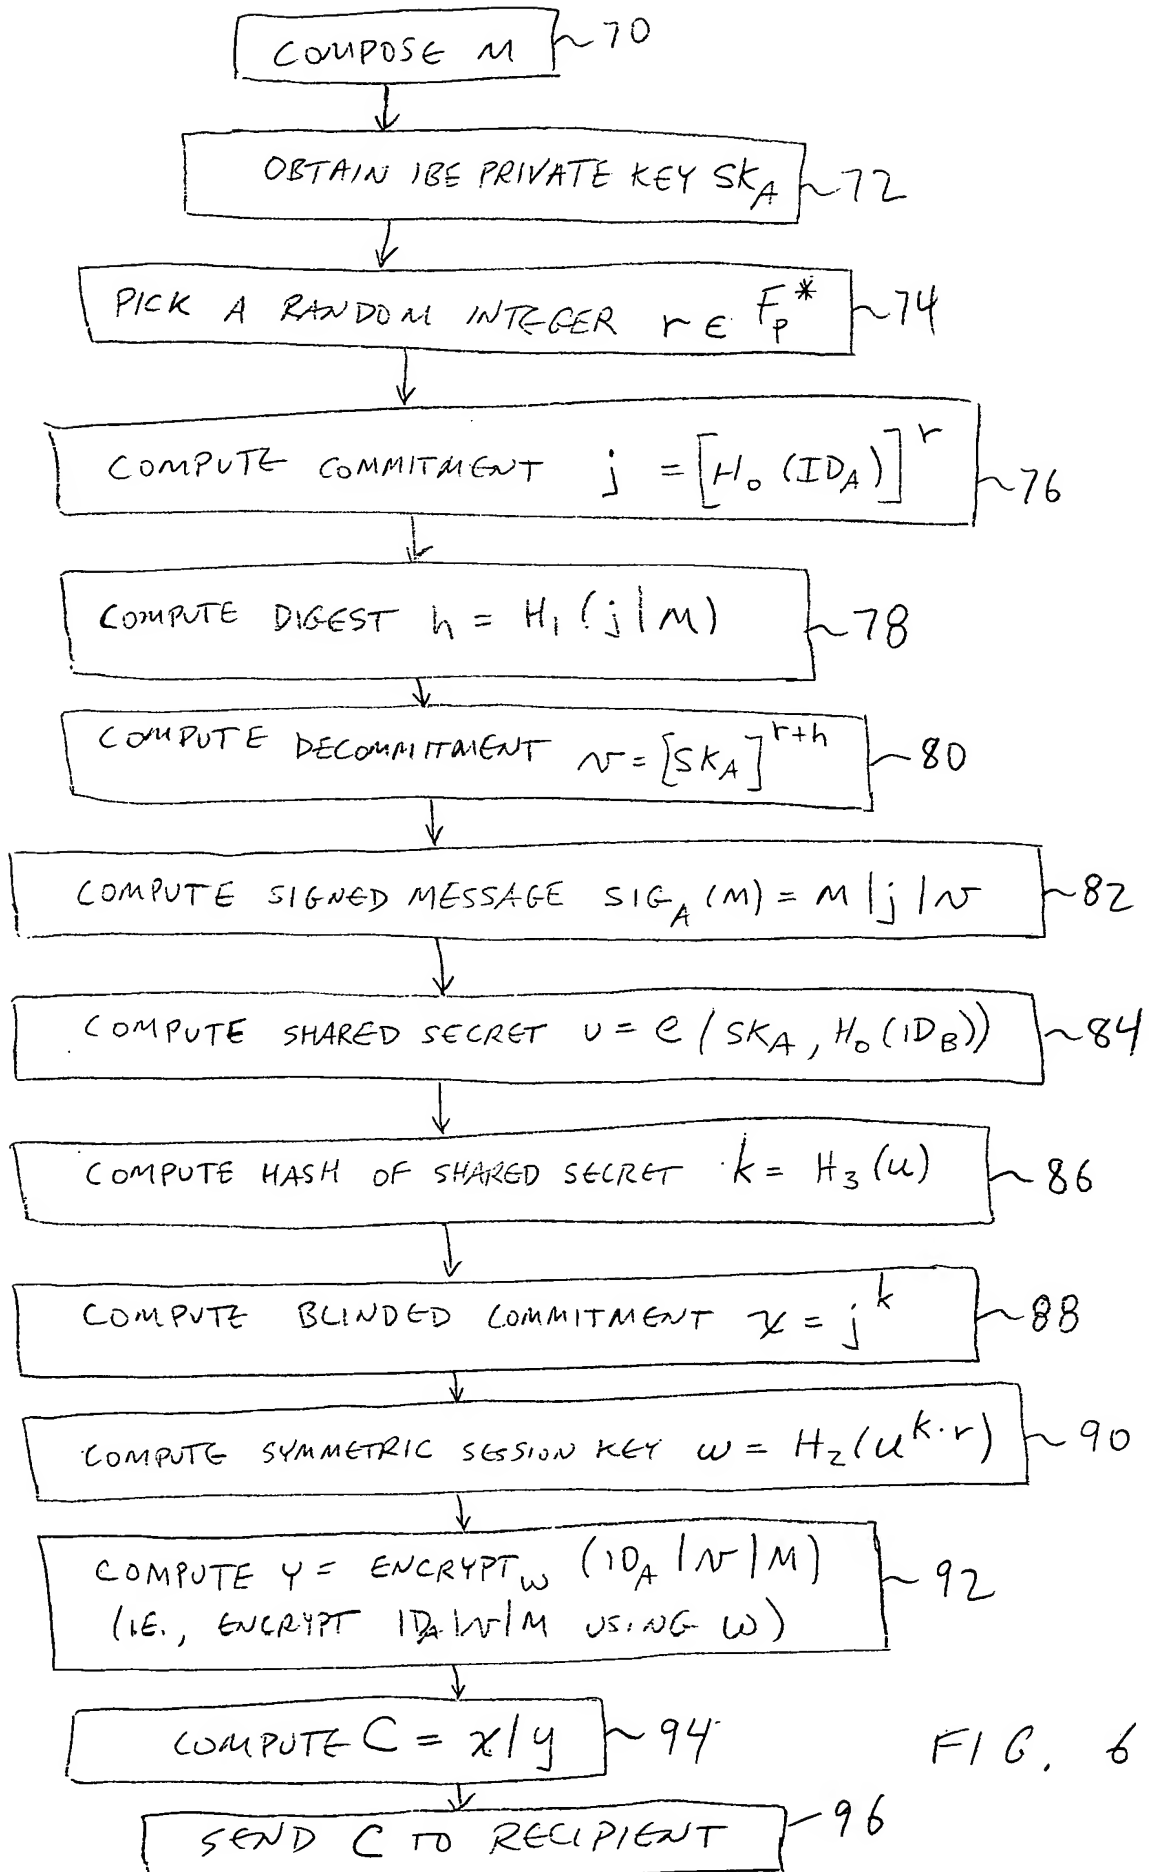 COMPOSE M 70
OBTAIN IBE PRIVATE KEY SK_A 72
PICK A RANDOM INTEGER r ∈ F_p^* 74
COMPUTE COMMITMENT j = [H_0 (ID_A)]^r 76
COMPUTE DIGEST h = H_1 (j|M) 78
COMPUTE DECOMMITMENT v = [SK_A]^{r+h} 80
COMPUTE SIGNED MESSAGE SIG_A (M) = M|j|v 82
COMPUTE SHARED SECRET U = e(SK_A, H_0(ID_B)) 84
COMPUTE HASH OF SHARED SECRET k = H_3(u) 86
COMPUTE BLINDED COMMITMENT x = j^k 88
COMPUTE SYMMETRIC SESSION KEY w = H_2(u^{k·r}) 90
COMPUTE Y = ENCRYPT_w (ID_A|v|M) 92
(I.E., ENCRYPT ID_A|v|M USING w)
COMPUTE C = x/y 94
FIG. 6
SEND C TO RECIPIENT 96